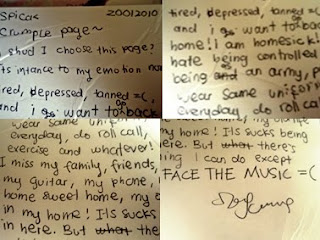 SPICA< 20012010
Crumple page~
I shud I choose this page?
its intance to my emotion now
tired, depressed, tanned =(,
and i go want to go
tired, depressed, tanned =(
and i go want to go back
home! i am homesick!
hate being controlled
being an army,
wear same uniform
everyday, do roll call
wear same uniform
everyday, do roll call,
exercise and whatever!
I miss my family, friends,
my guitar, my phone,
home sweet home, my
in my home! Its sucks
in here. But what there's
my home! Its sucks being
here. But what there's
ing I can do except
FACE THE MUSIC =(